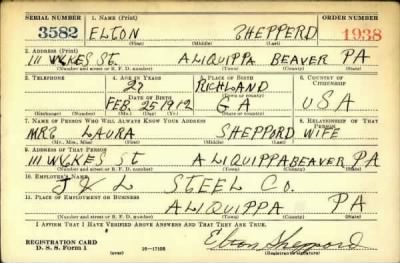 SERIAL NUMBER 1. NAME (Print) ORDER NUMBER
3582 ELTON SHEPPERD 1938
(First) (Middle) (Last)
2. ADDRESS (Print)
111 WYKES St. ALIQUIPPA BEAVER PA
(Number and street or R. F. D. number) (Town) (County) (State)
3. TELEPHONE 4. AGE IN YEARS 5. PLACE OF BIRTH 6. COUNTRY OF CITIZENSHIP
28 RICHLAND
DATE OF BIRTH (Town or county)
FEB 25 1912 GA USA
(Exchange) (No.) (Mo.) (Day) (Yr.) (State or country)
7. NAME OF PERSON WHO WILL ALWAYS KNOW YOUR ADDRESS 8. RELATIONSHIP OF THAT PERSON
MRS LAURA SHEPPORD WIFE
(Mr., Mrs., Miss) (First) (Middle) (Last)
9. ADDRESS OF THAT PERSON
111 WYKES St ALIQUIPPA BEAVER PA
(Number and street or R. F. D. number) (Town) (County) (State)
10. EMPLOYER'S NAME
J & L STEEL CO.
11. PLACE OF EMPLOYMENT OR BUSINESS
ALIQUIPPA PA
(Number and street or R. F. D. number) (Town) (County) (State)
I AFFIRM THAT I HAVE VERIFIED ABOVE ANSWERS AND THAT THEY ARE TRUE.
REGISTRATION CARD
D. S. S. Form 1 (over) 16-17105 Elton Sheppard
(Registrant's signature)